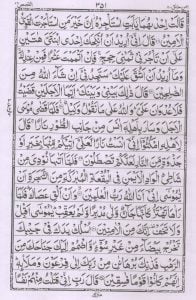 القصص ٢٨
٣٥١
قَالَتْ اِحْدٰىهُمَا يٰۤاَبَتِ اسْتَاْجِرْهُ اِنَّ خَيْرَ مَنِ اسْتَاْجَرْتَ الْقَوِيُّ
الْاَمِيْنُ قَالَ اِنِّيْۤ اُرِيْدُ اَنْ اُنْكِحَكَ اِحْدَى ابْنَتَيَّ هٰتَيْنِ
عَلٰۤى اَنْ تَاْجُرَنِيْ ثَمٰنِيَ حِجَجٍ فَاِنْ اَتْمَمْتَ عَشْرًا فَمِنْ عِنْدِكَ
وَمَاۤ اُرِيْدُ اَنْ اَشُقَّ عَلَيْكَ سَتَجِدُنِيْۤ اِنْ شَآءَ اللّٰهُ مِنَ
الصّٰلِحِيْنَ قَالَ ذٰلِكَ بَيْنِيْ وَبَيْنَكَ اَيَّمَا الْاَجَلَيْنِ قَضَيْتُ فَلَا
عُدْوَانَ عَلَيَّ وَاللّٰهُ عَلٰى مَا نَقُوْلُ وَكِيْلٌ فَلَمَّا قَضٰى مُوْسَى
الْاَجَلَ وَسَارَ بِاَهْلِهٖۤ اٰنَسَ مِنْ جَانِبِ الطُّوْرِ نَارًا قَالَ
لِاَهْلِهِ امْكُثُوْۤا اِنِّيْۤ اٰنَسْتُ نَارًا لَّعَلِّيْۤ اٰتِيْكُمْ مِّنْهَا بِخَبَرٍ
اَوْ جَذْوَةٍ مِّنَ النَّارِ لَعَلَّكُمْ تَصْطَلُوْنَ فَلَمَّاۤ اَتٰىهَا نُوْدِيَ مِنْ
شَاطِئِ الْوَادِ الْاَيْمَنِ فِي الْبُقْعَةِ الْمُبٰرَكَةِ مِنَ الشَّجَرَةِ اَنْ
يّٰمُوْسٰۤى اِنِّيْۤ اَنَا اللّٰهُ رَبُّ الْعٰلَمِيْنَ وَاَنْ اَلْقِ عَصَاكَ فَلَمَّا
رَاٰهَا تَهْتَزُّ كَاَنَّهَا جَآنٌّ وَّلّٰى مُدْبِرًا وَّلَمْ يُعَقِّبْ يٰمُوْسٰۤى اَقْبِلْ
وَلَا تَخَفْ اِنَّكَ مِنَ الْاٰمِنِيْنَ اُسْلُكْ يَدَكَ فِيْ جَيْبِكَ
تَخْرُجْ بَيْضَآءَ مِنْ غَيْرِ سُوْٓءٍ وَّاضْمُمْ اِلَيْكَ جَنَاحَكَ مِنَ
الرَّهْبِ فَذٰنِكَ بُرْهَانٰنِ مِنْ رَّبِّكَ اِلٰى فِرْعَوْنَ وَمَلَا۟ئِهٖ
اِنَّهُمْ كَانُوْا قَوْمًا فٰسِقِيْنَ قَالَ رَبِّ اِنِّيْ قَتَلْتُ مِنْهُمْ نَفْسًا